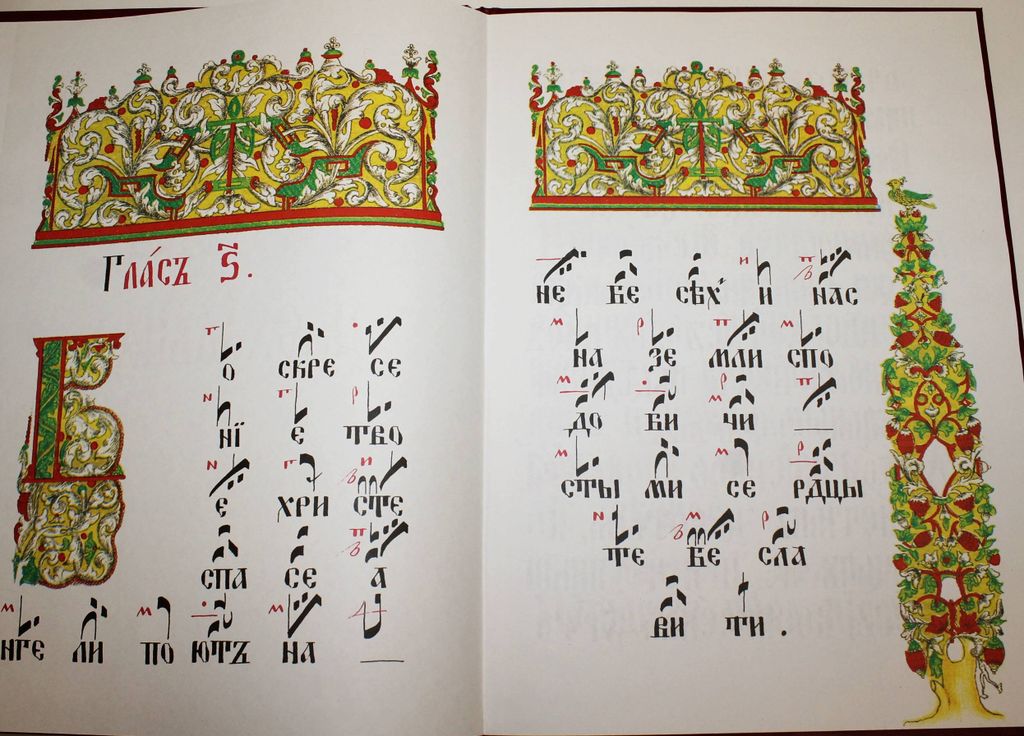 Гла́съ ѕ҃.
В о скре се
нї е тво
е хри сте
спа се а
нге ли по ютъ на
не бе сѣх' и нас
на зе мли спо
до ви чи
сты ми се рдцы
те бе сла
ви ти .